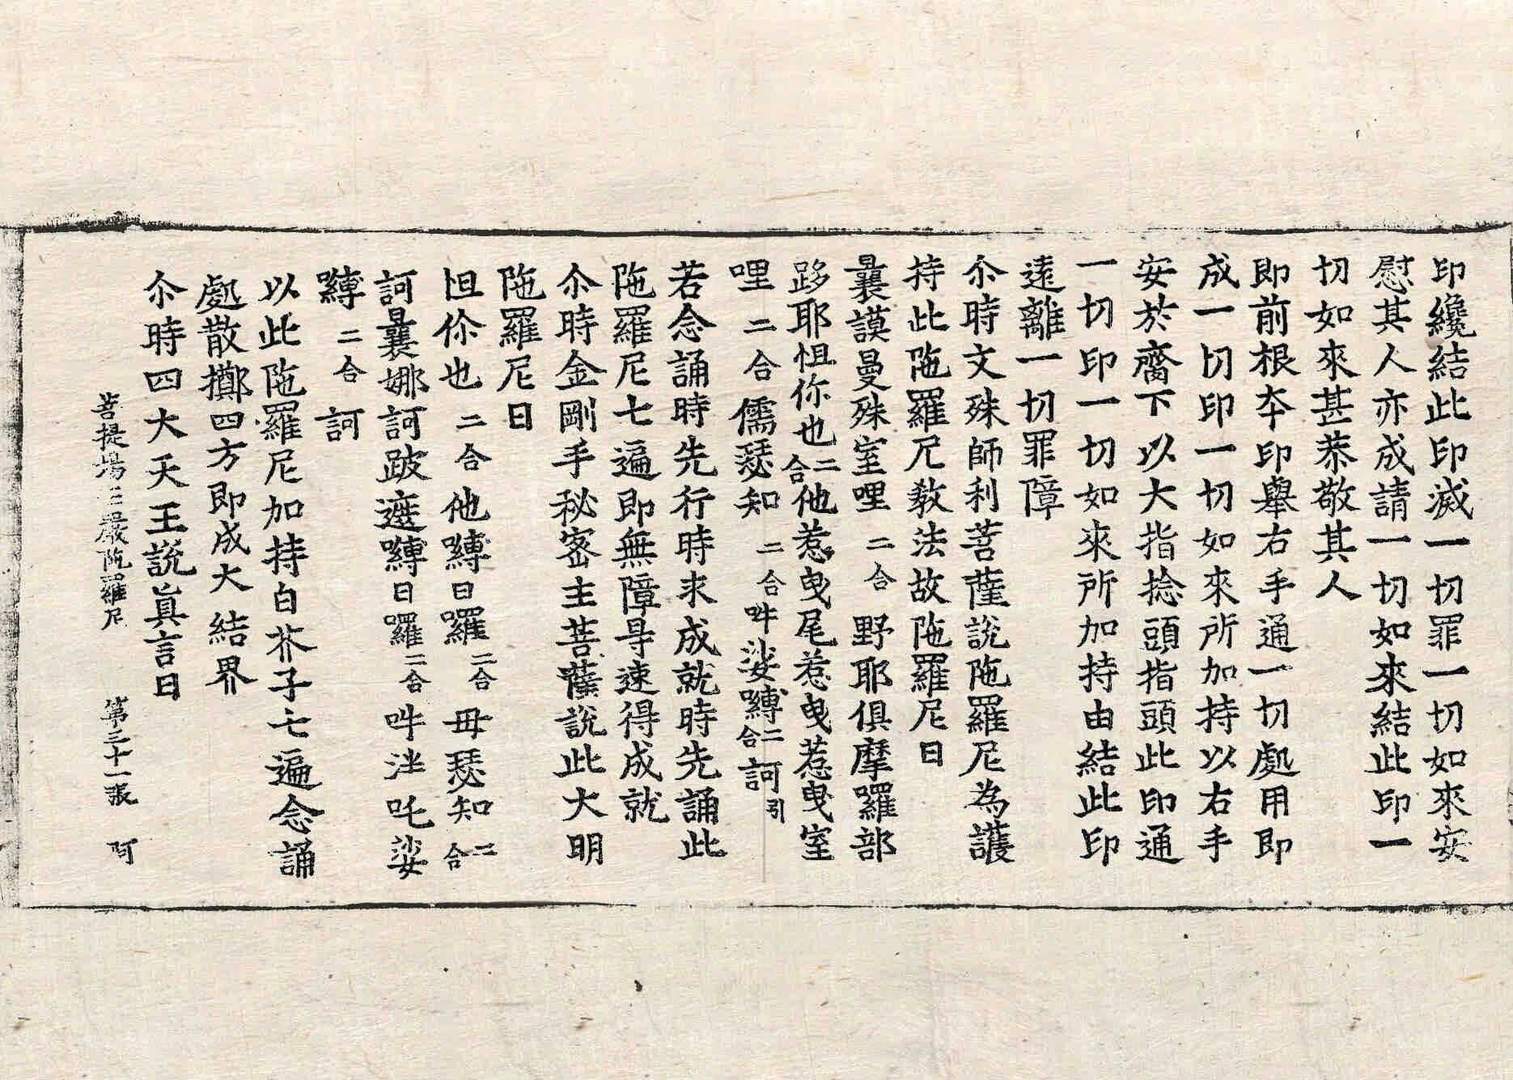 印纔結此印滅一切罪一切如來安
慰其人亦成請一切如來結此印一
切如來甚恭敬其人
即前根夲印舉右手通一切處用即
成一切印一切如來所加持以右手
安於臍下以大指捻頭指頭此印通
一切印一切如來所加持由結此印
遠離一切罪障
尒時文殊師利菩薩說陁羅尼為護
持此陁羅尼教法故陁羅尼曰
曩謨曼殊室哩二合野耶俱摩羅部
跢耶怛你也二合他惹曳尾惹曳惹曳室
哩二合儒瑟知二合吽娑嚩二合訶引
若念誦時先行時求成就時先誦此
陁羅尼七遍即無障㝵速得成就
尒時金剛手秘密主菩薩說此大明
陁羅尼曰
怛你也二合他嚩日羅二合母瑟知二合
訶曩娜訶跛遮嚩日羅二合吽泮吒娑
嚩二合訶
以此陁羅尼加持白芥子七遍念誦
處散擲四方即成大結界
尒時四大天王說真言曰
菩提場庄嚴陁羅尼 第三十一張 阿